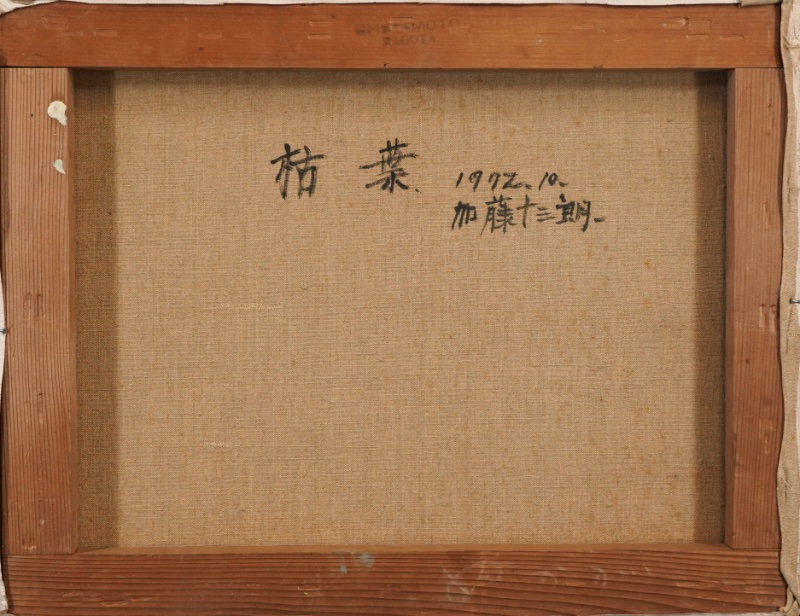 枯葉. 1972.10.
加藤十三朗
NAGOYA